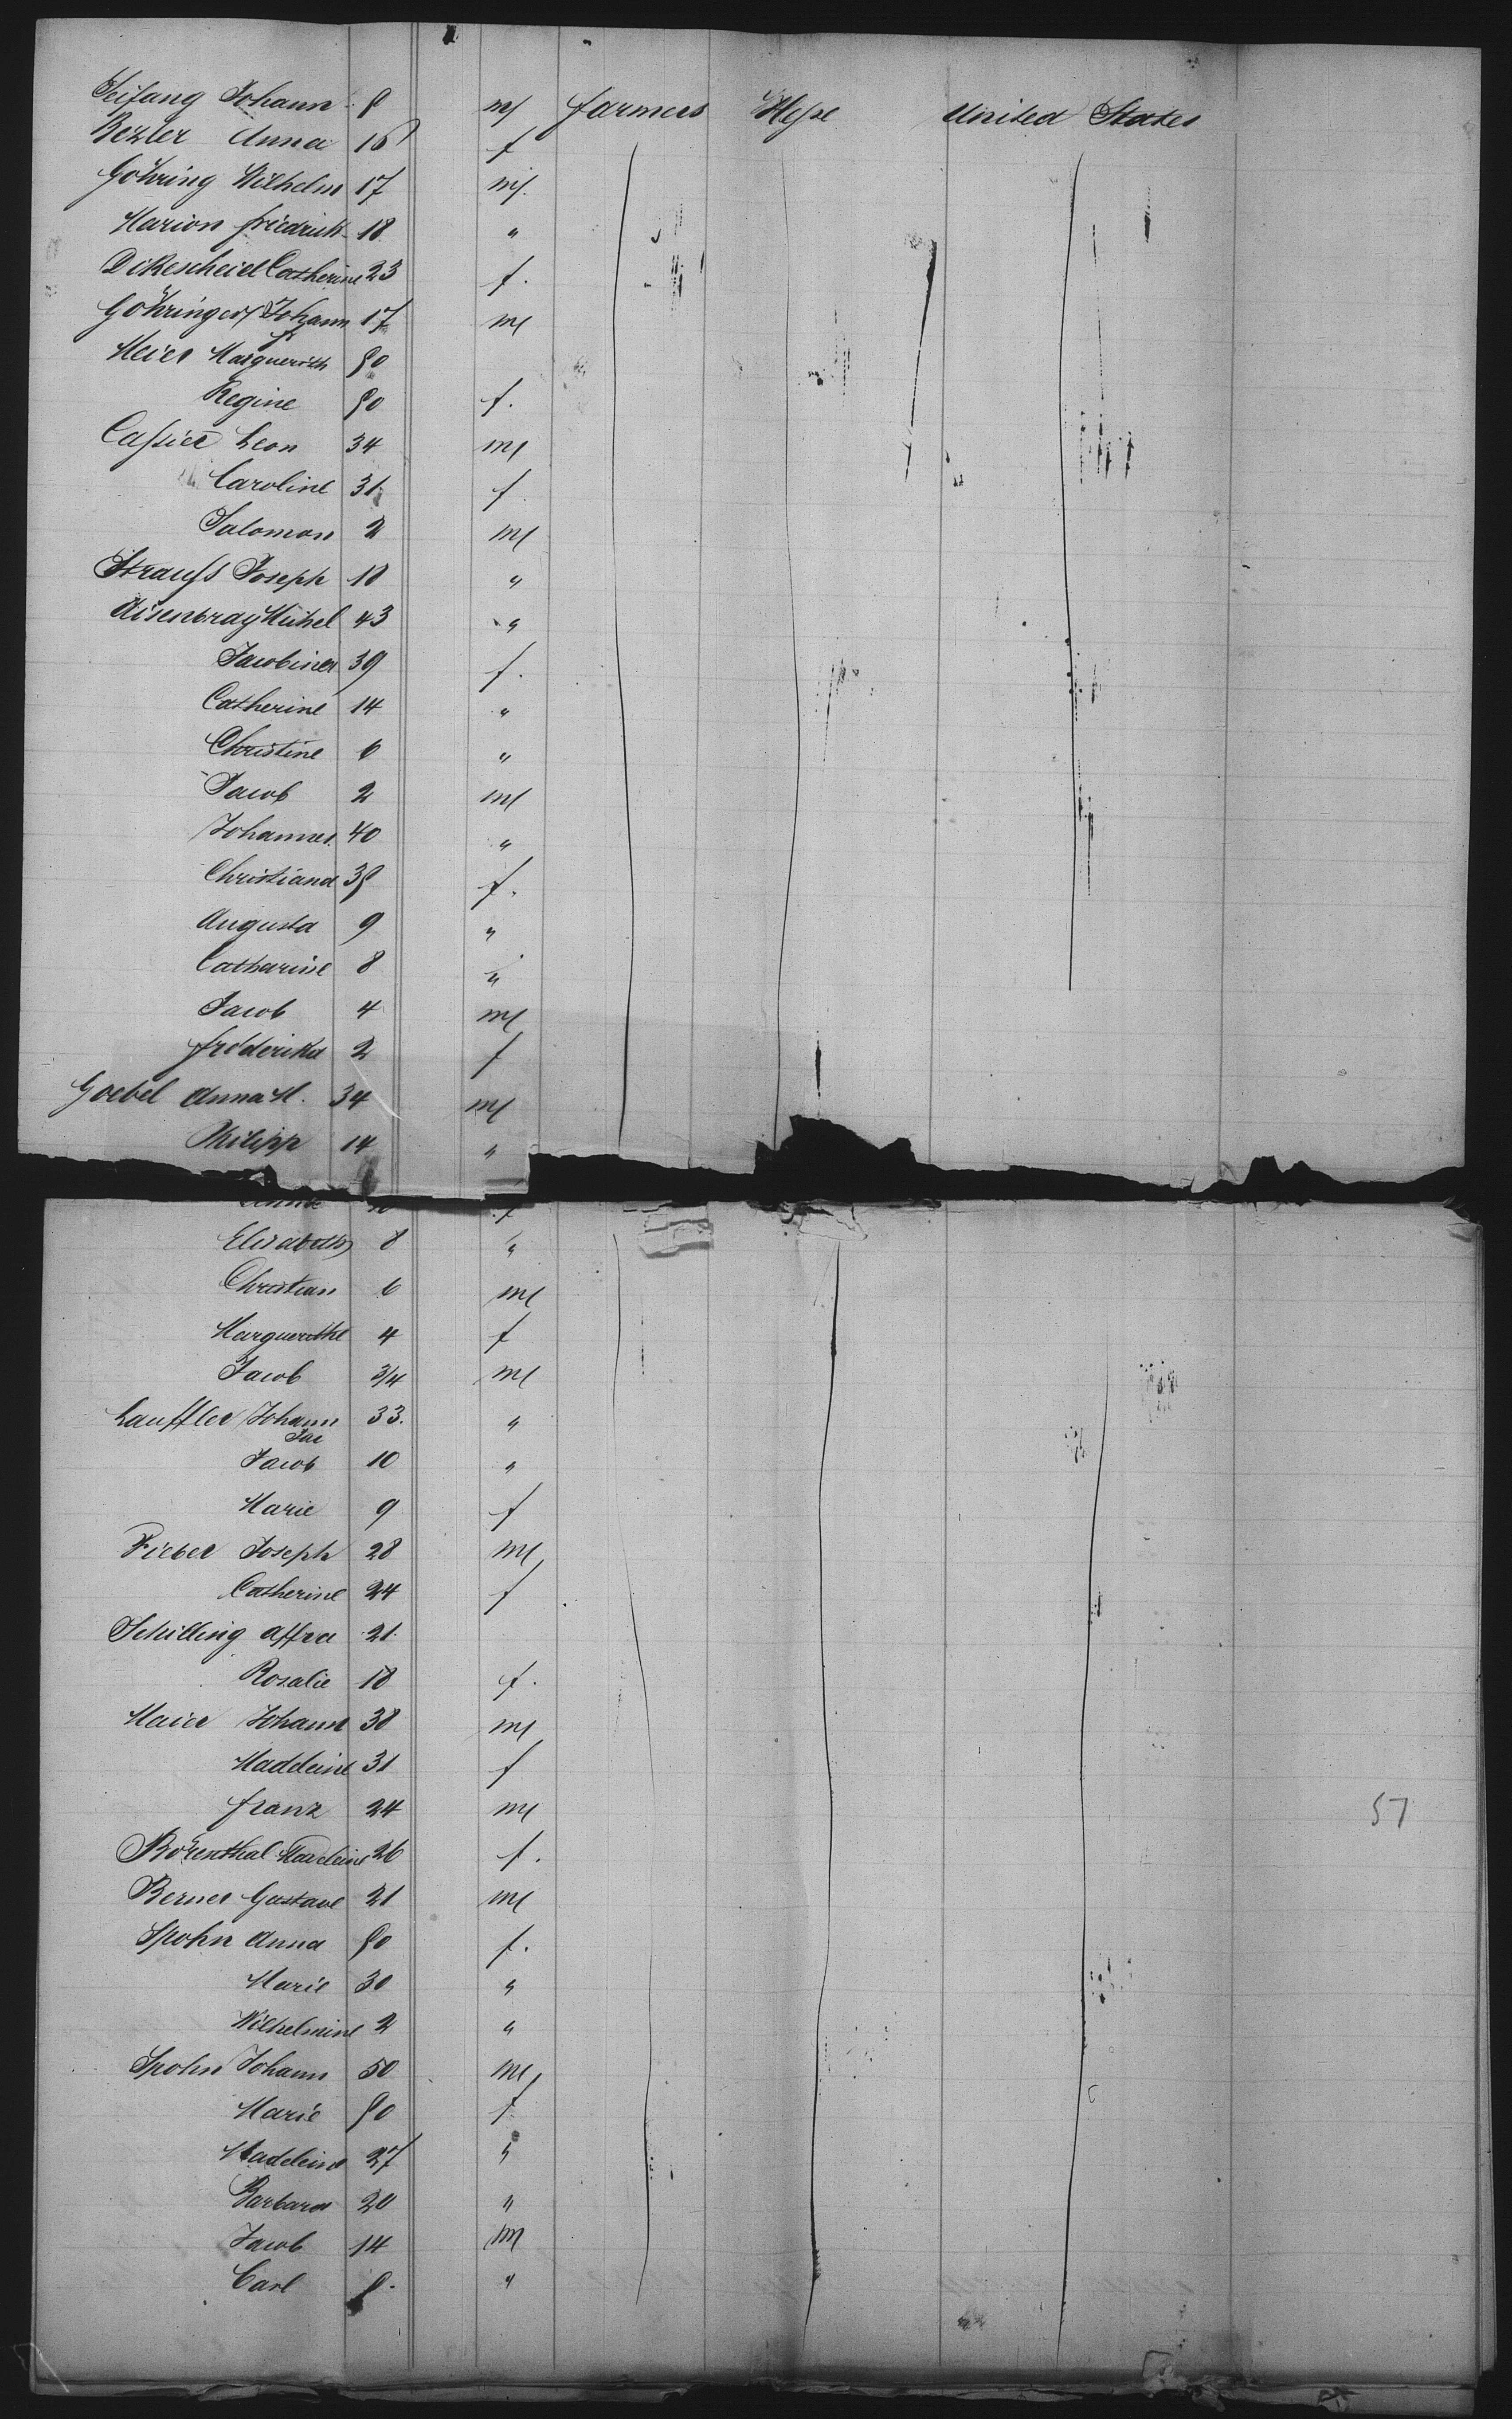 Seifang Johann 8 m farmers Hesse United States
Bezler Anna 16 f
Göhring Wilhelm 17 m.
Marion friedrich 18 "
Dikescheid Catherine 23 f.
Göhringer Johann 17 m
Meier Marguerith 50
Regine 50 f.
Cassier Leon 34 m
Caroline 31 f.
Salomon 2 m
Strauss Joseph 18 "
Aisenbray Michel 43 "
Jacobina 39 f.
Catherine 14 "
Christine 6 "
Jacob 2 m
Johannes 40 "
Christiana 35 f.
Augusta 9 "
Catharine 8 "
Jacob 4 m
fréderika 2 f
Goebel Anna M. 34 m
Philipp 14 "
f
Elisabeth 8 "
Christian 6 m
Marguerithe 4 f
Jacob 3/4 m
Lauffler Johann 33. "
Jac
Jacob 10 "
Marie 9 f
Fieber Joseph 28 m
Catherine 24 f
Schilling Affra 21.
Rosalie 18 f.
Maier Johann 38 m
Madeleine 31 f
franz 24 m
Rosenthal Madeleine 26 f.
Berner Gustave 21 m
Spohn Anna 50 f.
Marie 30 "
Wilhelmine 2 "
Spohn Johann 50 m
Marie 50 f
Madeleine 27 "
Barbara 20 "
Jacob 14 m
Carl 8. "
57